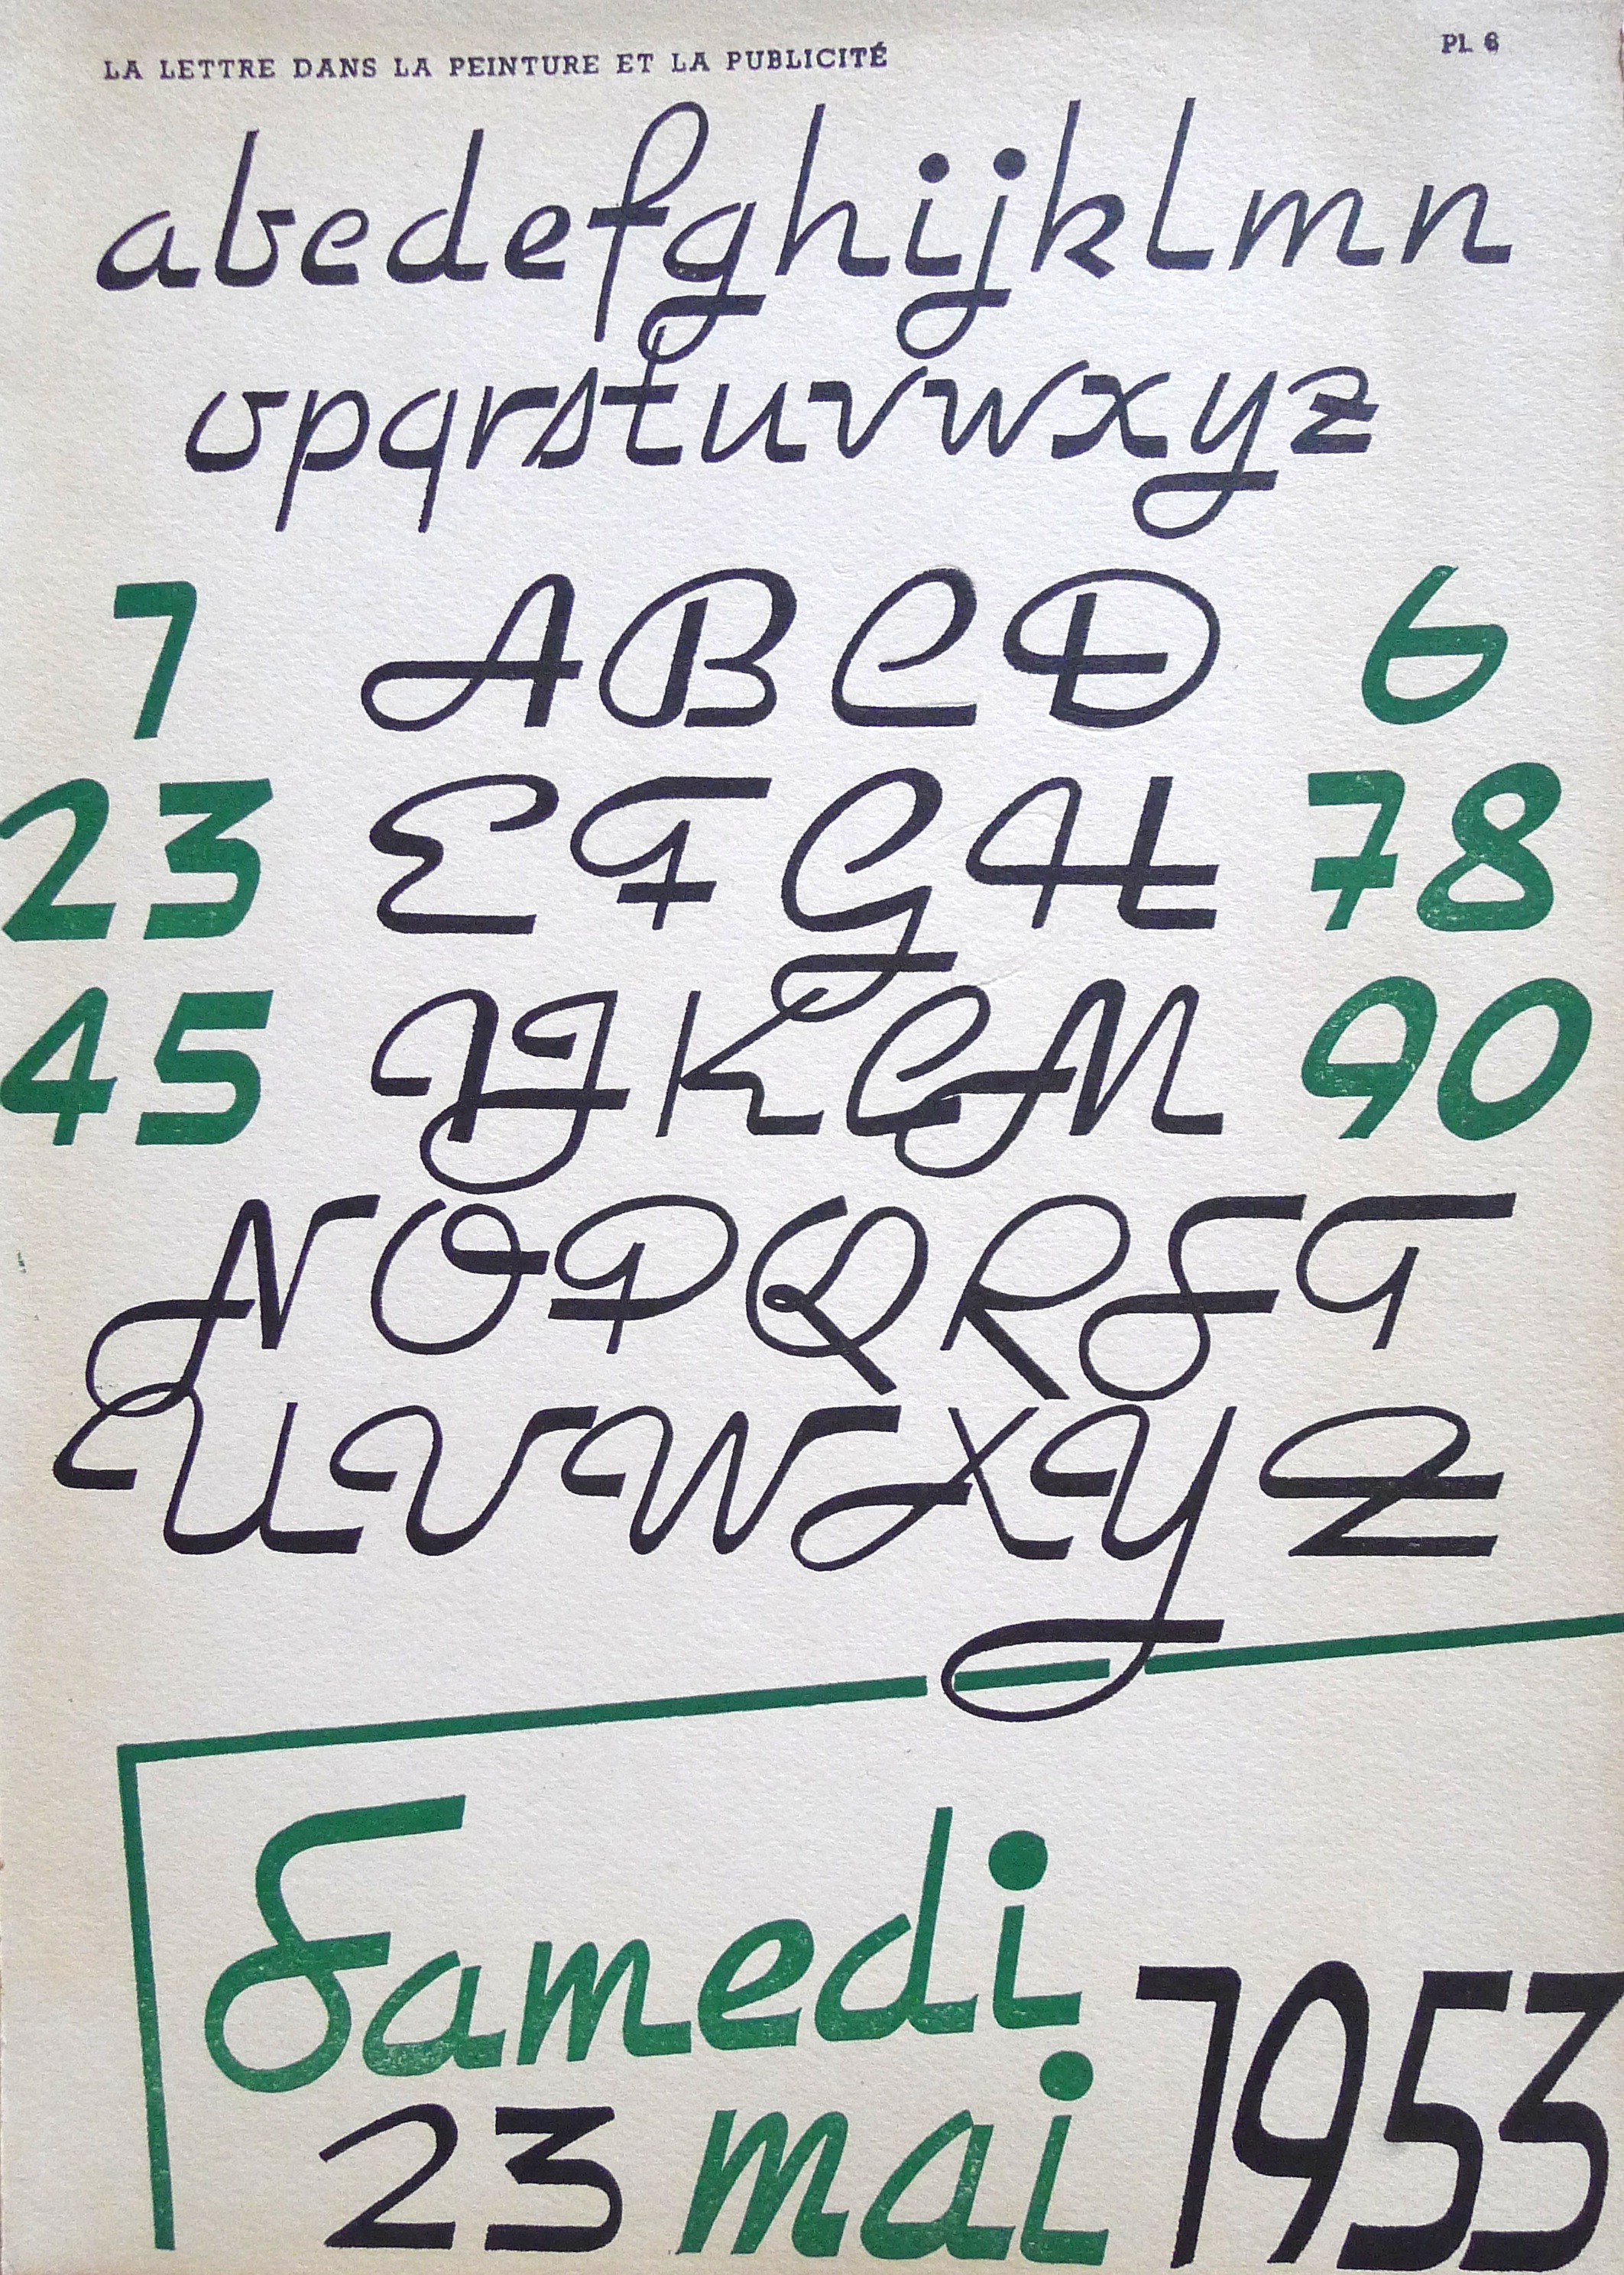 LA LETTRE DANS LA PEINTURE ET LA PUBLICITÉ PL 6
abcdefghijklmn
opqrstuvwxyz
1 ABCD 6
23 EFGH 78
45 IJKLM 90
NOPQRST
UVWXYZ
Samedi
23 mai 1953